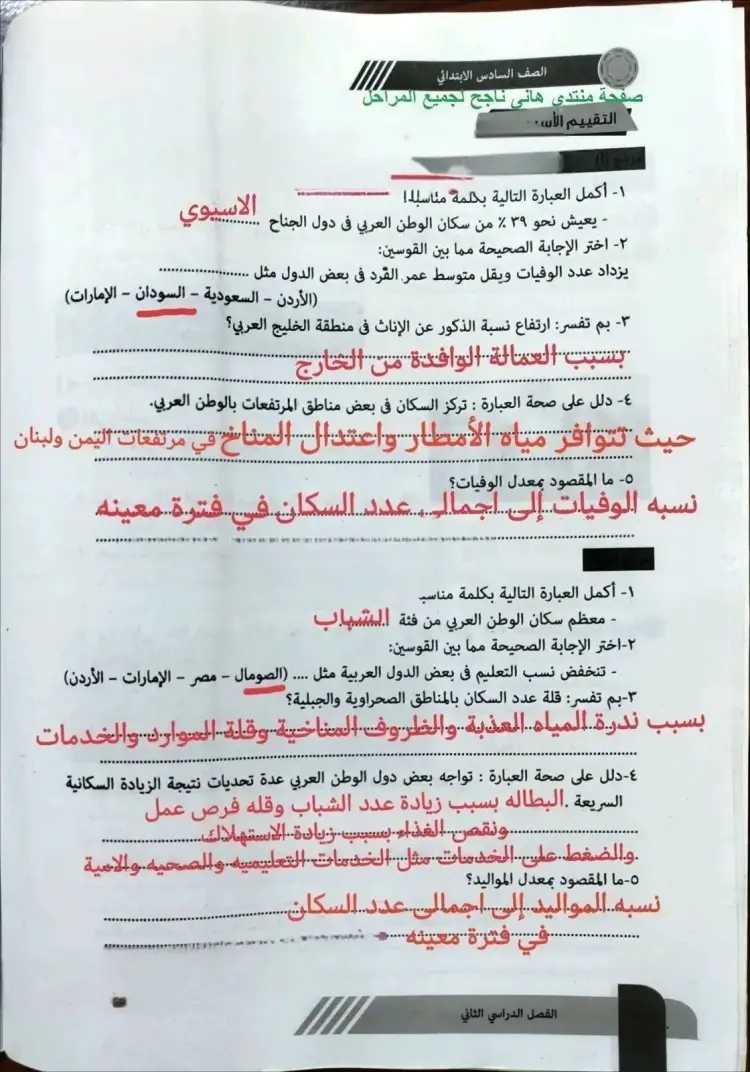 الصف السادس الابتدائي
صفحة منتدى هاني ناجح لجميع المراحل
التقييم
١- أكمل العبارة التالية بكلمة مناسبة:
- يعيش نحو ٣٩ ٪ من سكان الوطن العربي فى دول الجناح .......... الاسيوي
٢- اختر الإجابة الصحيحة مما بين القوسين:
يزداد عدد الوفيات ويقل متوسط عمر الفرد فى بعض الدول مثل ....................
(الأردن - السعودية - السودان - الإمارات)
٣- بم تفسر: ارتفاع نسبة الذكور عن الإناث فى منطقة الخليج العربي؟
بسبب العمالة الوافدة من الخارج
٤- دلل على صحة العبارة : تركز السكان فى بعض مناطق المرتفعات بالوطن العربي.
حيث تتوافر مياه الأمطار واعتدال المناخ في مرتفعات اليمن ولبنان
٥- ما المقصود بمعدل الوفيات؟
نسبه الوفيات إلى اجمالى عدد السكان في فترة معينه
١- أكمل العبارة التالية بكلمة مناسب
- معظم سكان الوطن العربي من فئة الشباب
٢-اختر الإجابة الصحيحة مما بين القوسين:
- تنخفض نسب التعليم فى بعض الدول العربية مثل .... (الصومال - مصر - الإمارات - الأردن)
٣-بم تفسر: قلة عدد السكان بالمناطق الصحراوية والجبلية؟
بسبب ندرة المياه العذبة والظروف المناخية وقلة الموارد والخدمات
٤-دلل على صحة العبارة : تواجه بعض دول الوطن العربي عدة تحديات نتيجة الزيادة السكانية
السريعة . البطاله بسبب زيادة عدد الشباب وقله فرص عمل
ونقص الغذاء بسبب زيادة الاستهلاك
والضغط على الخدمات مثل الخدمات التعليميه والصحيه والامية
٥-ما المقصود بمعدل المواليد؟
نسبه المواليد إلى اجمالى عدد السكان
في فترة معينه
الفصل الدراسي الثاني